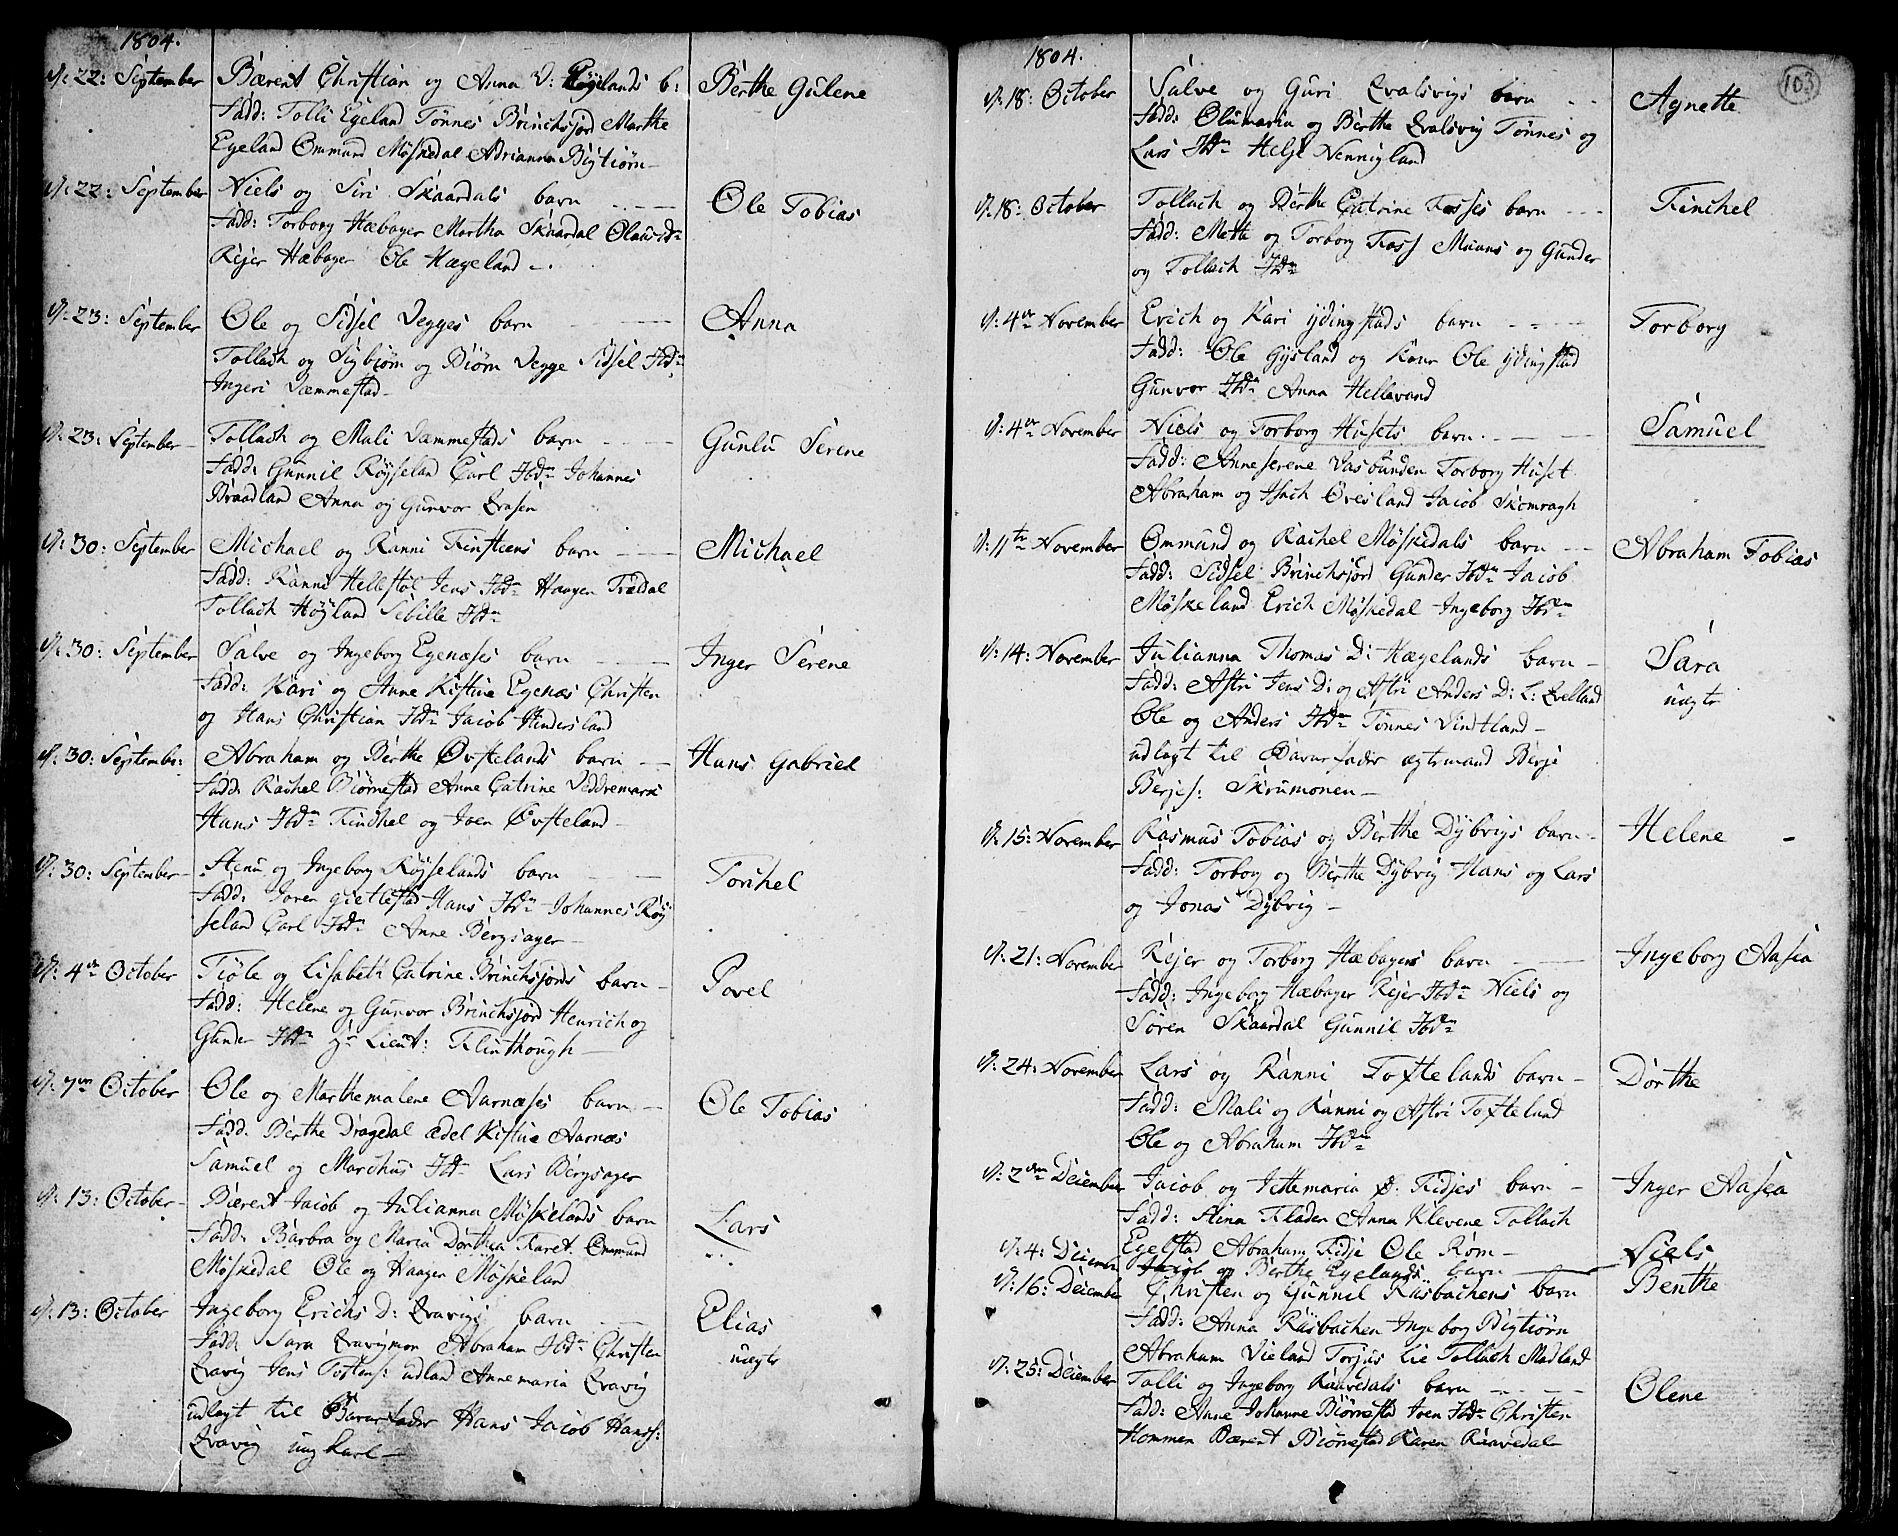 1804.
d: 22: September
Bærent Christian og Anna D: Egelands b:
Berthe Gulene
Fadd: Tolli Egeland Tönnes Brinchsjord Marthe
Egeland Ommund Möskedal Adrianna Bigtiörn
d: 22: September
Niels og Siri Skaardals barn
Ole Tobias
Fadd: Torborg Hæbager Martha Skaardal
Rejer Hæbager Ole Hægeland
d: 23: September
Ole og Sidsel Vegges barn
Anna
Tollach og Sigbiörn og Biörn Vegge Sidsel Ibdm
Ingeri Vemmestad
d: 23: September
Tollach og Mali Vemmestads barn
Gunlu Serene
Fadd: Gunnil Röysseland Carl Ibdm Johannes
Braadland Anna og Gunvor
d: 30: September
Michael og Ranni Finsteens barn
Michael
Fadd: Ranni Hellestöl Jens Ibdm Haagen Trædal
Tollach Höyland Sibille Ibdm
d: 30: September
Salve og Ingeborg Egenæses barn
Inger Serene
Fadd: Kari og Anne Kistine Egenæs Christen
og Hans Christian Ibdm Jacob
d: 30: September:
Abraham og Berthe Øvstelands barn
Hans Gabriel
Fadd: Rachel Biörnestad Anne Catrine
Hans Ibdm Kinchel og Iven Øvsteland
d: 30: September
og Ingeborg Röysselands barn
Torchel
Fadd: Joren Hans Ibdm Johannes Röy
seland Carl Ibdm Anne Bergsager
d: 4de October
Tiöle og Lisabeth Catrine Brinchsjords barn
Povel
Fadd: Helene og Gunvor Brinchsjord Henrich og
Gunder Ibdm Hr Lieut: Flinthough
d: 7de October
Ole og Marthemalene Aarnæses barn
Ole Tobias
Fadd: Berthe Dragedal Ædel Kistine Aarnæs
Samuel og Marchus Ibdm Lars Bergsager
d: 13: October
Bærent Jacob og Julianna Möskelands barn
Lars
Fadd: Barbra og Maria Dorthea Faret Ommund
Möskedal Ole og Haagen Möskeland
d: 13: October
Ingeborg Erichs D: Qvavigs barn
Elias
Fadd: Sara Qvavigmon Abraham Ibdm Christen
uægte
Qvavig Jens Annemaria Qvavig
udlagt til Barnefader Hans Jacob Hanss:
Qvavig ung karl
1804.
103
d: 18: October
Salve og Guri Qvalsvigs barn
Agnette
Fadd: Olumaria og Berthe Qvalsvig Tönnes og
Lars Ibdm Helje Nennigland
d: 18: October
Tollach og Berthe Catrine Fosses barn
Kinchel
Fadd: Mette og Torborg Foss Maans og Gunder
og Tollach Ibdm
d: 4de November
Erich og Kari Ydingstads barn
Torborg
Fadd: Ole Gysland og Kone Ole Ydingstad
Gunvor Ibdm Anna Hellevand
d: 4de November
Niels og Torborg Husets barn
Samuel
Fadd: Anneserene Vasbunden Torborg Huset
Abraham og Isach Øvesland Jacob Skomragh
d: 11te November
Ommund og Rachel Möskedals barn
Abraham Tobias
Fadd: Sidsel Brinchsjord Gunder Ibdm Jacob
Möskeland Erich Möskedal Ingeborg Ibdm
d: 14: November
Julianna Thomas D: Hægelands barn
Sara
Fadd: Astri Jens D: og Astri Anders D: L: Qvelland
uægte
Ole og Anders Ibdm Tönnes Vindtland
udlagt til Barnefader ægtemand Berje
Berjes: Skrumonen
d: 15: November
Rasmus Tobias og Berthe Dybvigs barn
Helene
Fadd: Torborg og Berthe Dybvig Hans og Lars
og Jonas Dybvig
d: 21: November
Rejer og Torborg Hæbagers barn
Ingeborg Aasea
Fadd: Ingeborg Hæbager Rejer Ibdm Niels og
Sören Skaardal Gunnil Ibdm
d: 24: November
Lars og Ranni Toftelands barn
Dorthe
Fadd: Mali og Ranni og Astri Tofteland
Ole og Abraham Ibdm
d: 2den December
Jacob og Jettemaria Fidjes barn
Inger Aasea
Fadd: Stina Fladen Anna Klevene Tollach
Egelstad Abraham Fidje Ole Röm
d: 4: December
Jacob og Berthe Egelands barn
Niels
d: 16: December
Christen og Gunnil Rasbachens barn
Benthe
Fadd: Anna Rasbachen Ingeborg Bigtiörn
Abraham Vieland Torjus Lie Tollach Madland
d: 25: December
Tolli og Ingeborg Raavedals barn
Olene
Fadd: Anne Johanne Biörnestad Iven Ibdm Christen
Hommen Bærent Biörnestad Karen Raavedal